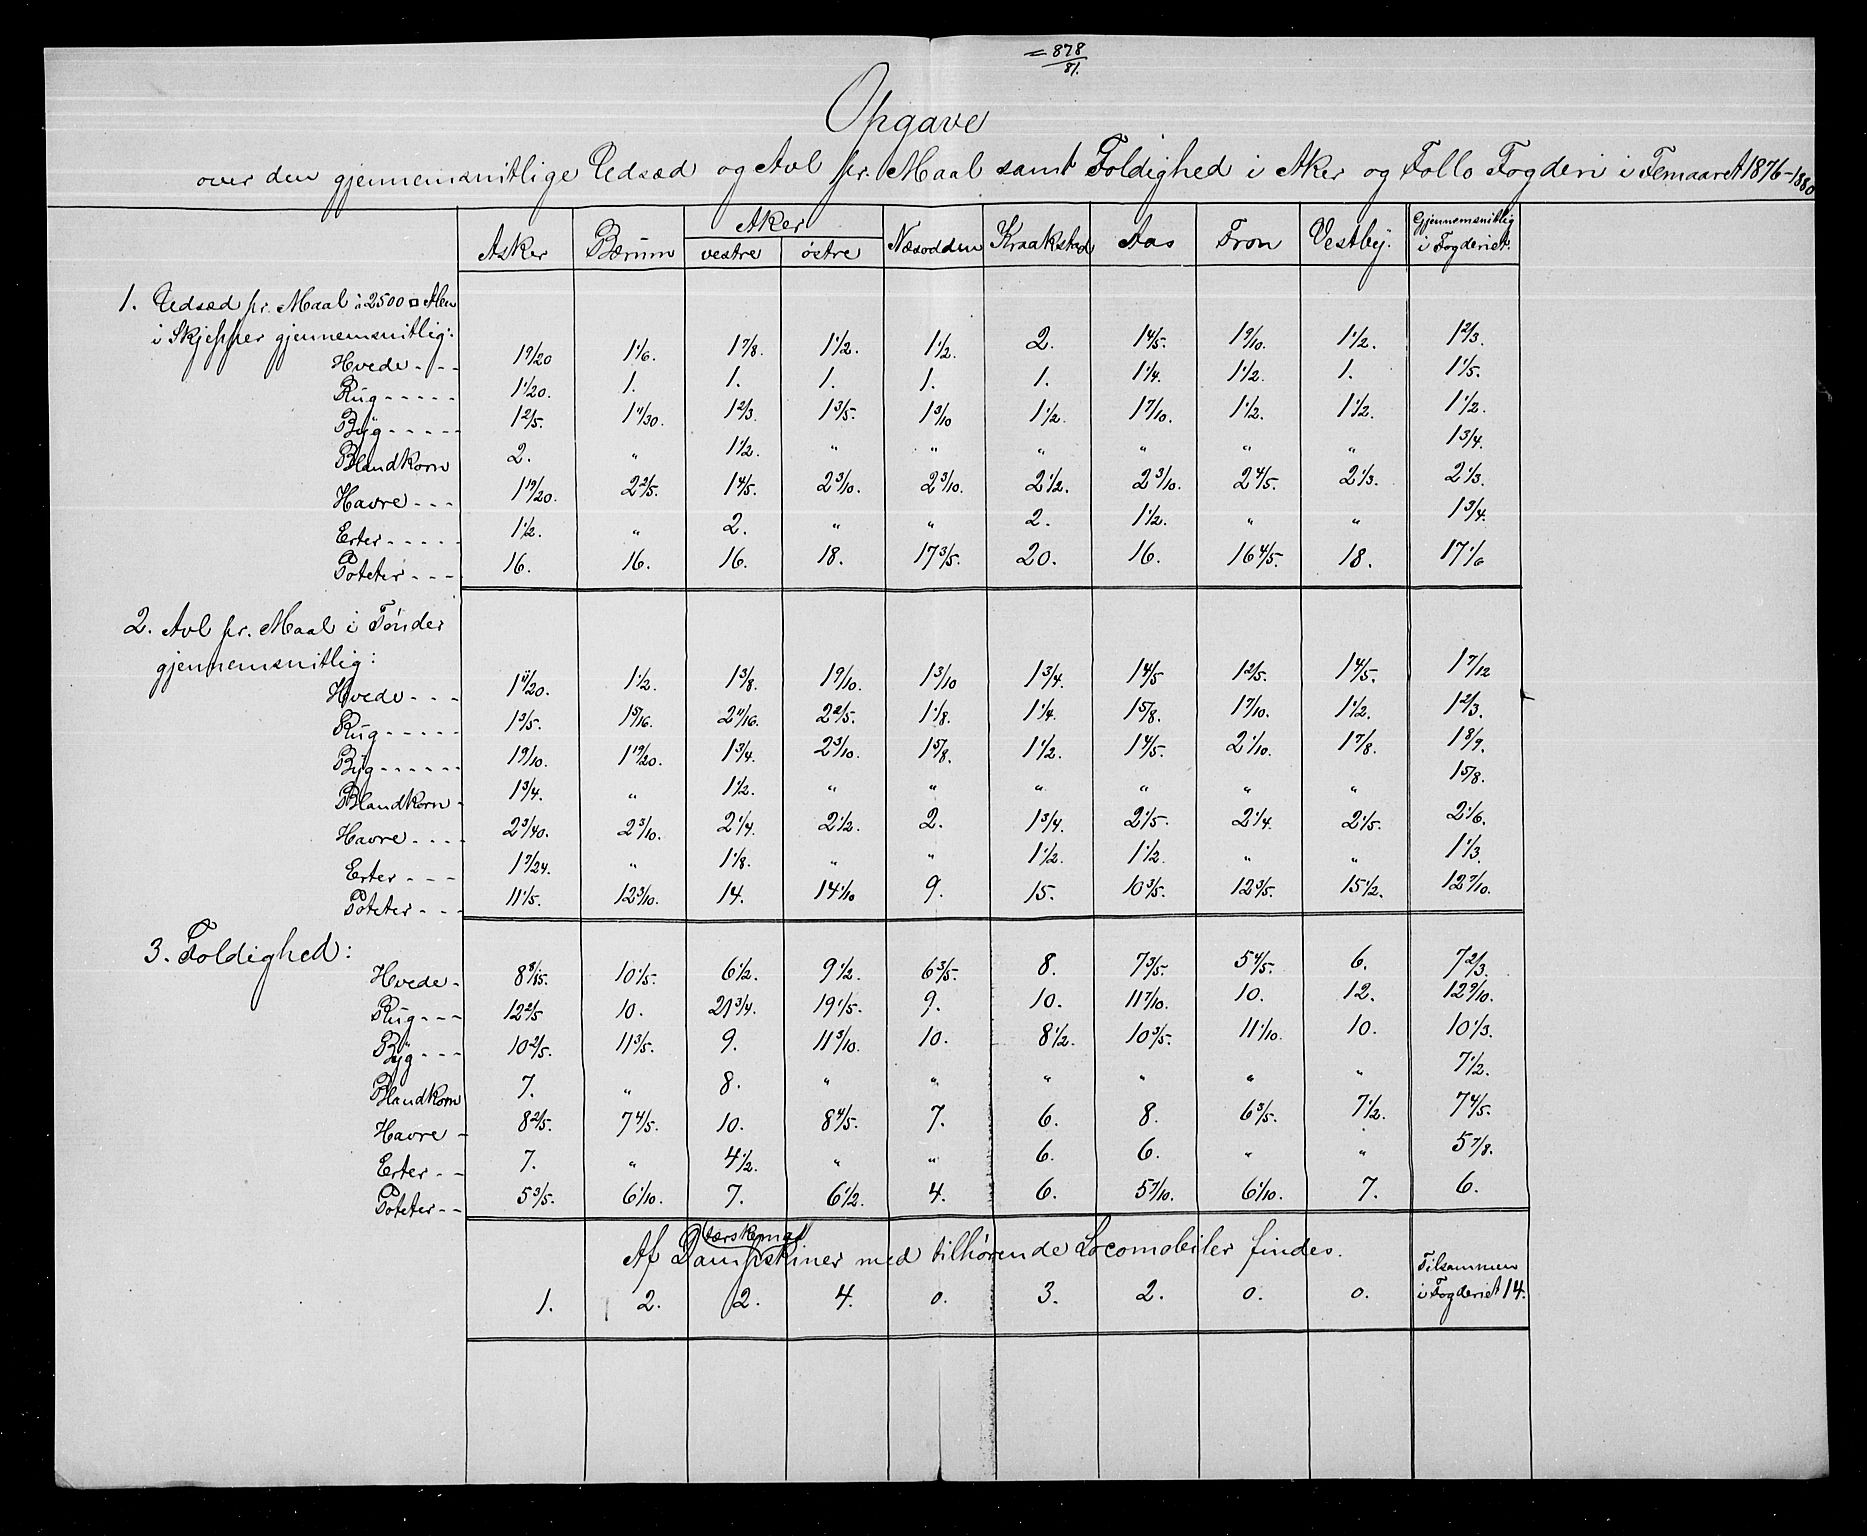 = 878/81.
Opgave
over den gjennemsnitlige Udsæd og Avl pr. Maal samt Foldighed i Aker og Follo Fogderi i Femaaret 1876-1880
Asker Bærum Aker vestre østre Næsodden Kraakstad Aas Fron Vestby. Gjennemsnitlig i Fogderiet.
1. Udsæd pr. Maal à 2500 □ Alen
i Skjepper gjennemsnitlig:
Hvede - - - 1 9/20 1 1/6. 1 7/8. 1 1/2. 1 1/2. 2. 1 4/5. 1 9/10. 1 1/2. 1 2/3.
Rug - - - - - 1 1/20. 1. 1. 1. 1. 1. 1 1/4. 1 1/2. 1. 1 1/5.
Byg - - - - - 1 2/5. 1 11/30. 1 2/3. 1 3/5. 1 3/10 1 1/2. 1 7/10. 1 1/2. 1 1/2. 1 1/2.
Blandkorn 2. " 1 1/2. " " " " " " 1 3/4.
Havre - - - 1 19/20. 2 2/5. 1 4/5. 2 3/10. 2 3/10. 2 1/2. 2 3/10. 2 4/5. 2 1/3. 2 1/3.
Erter - - - - - 1 1/2. " 2. " " 2. 1 1/2. " " 1 3/4.
Poteter - - - 16. 16. 16. 18. 17 3/5. 20. 16. 16 4/5. 18. 17 1/6
2. Avl pr. Maal i Tønder
gjennemsnitlig:
Hvede - - - 1 11/20. 1 1/2. 1 3/8. 1 9/10. 1 3/10 1 3/4. 1 4/5 1 2/5. 1 4/5. 1 7/12
Rug - - - - - 1 3/5. 1 5/16. 2 11/16. 2 2/5. 1 1/8. 1 1/4. 1 5/8. 1 7/10. 1 1/2. 1 2/3.
Byg - - - - - - 1 9/10. 1 19/20. 1 3/4. 2 3/10. 1 5/8. 1 1/2. 1 4/5. 2 1/10. 1 7/8. 1 8/9.
Blandkorn - 1 3/4. " 1 1/2. " " " " " " 1 5/8.
Havre - - - - 2 3/40. 2 3/10. 2 1/4. 2 1/2. 2. 1 3/4. 2 1/5. 2 1/4. 2 1/5. 2 1/6.
Erter - - - 1 7/24. " 1 1/8. " " 1 1/2. 1 1/2. " " 1 1/3.
Poteter - - - 11 1/5. 12 3/10. 14. 14 1/10 9. 15. 10 3/5. 12 3/5. 15 1/2. 12 7/10.
3. Foldighed:
Hvede - 8 8/15. 10 1/5. 6 1/2. 9 1/2. 6 3/5. 8. 7 3/5. 5 4/5. 6. 7 2/3.
Rug - - - 12 2/5 10. 21 3/4. 19 1/5. 9. 10. 11 7/10. 10. 12. 12 9/10.
Byg - - - 10 2/5. 11 3/5. 9. 11 3/10. 10. 8 1/2. 10 3/5. 11 1/10. 10. 10 1/3.
Blandkorn 7. " 8. " " " " " " 7 1/2.
Havre - 8 2/5. 7 4/5. 10. 8 4/5. 7. 6. 8. 6 3/5. 7 1/2. 7 4/5.
Erter - - 7. " 4 1/2. " " 6. 6. " " 5 7/8.
Poteter - - 5 3/5. 6 1/10. 7. 6 1/2. 4. 6. 5 7/10. 6 1/10. 7. 6.
Af med tilhørende Locomobiler findes.
1. 2. 2. 4. 0. 3. 2. 0. 0. Tilsammen
i Fogderiet 14.